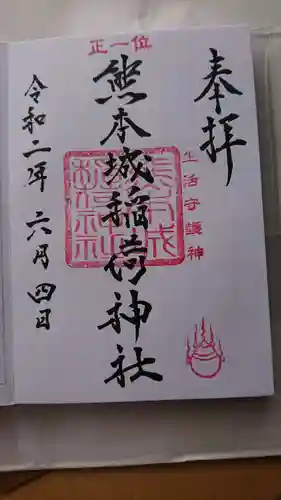 奉拝
生活守護神
正一位
熊本城稲荷神社
令和二年六月四日